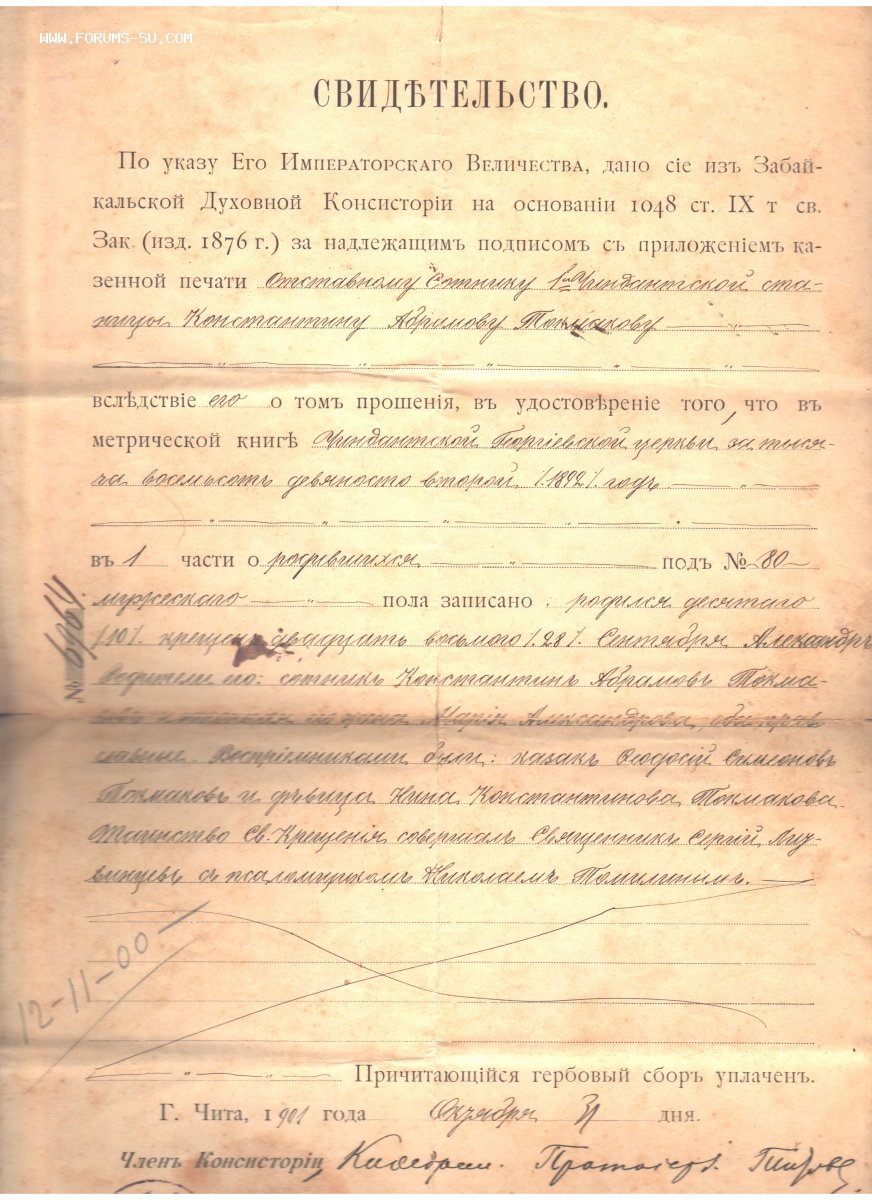 WWW.FORUMS-SU.COM
СВИДѢТЕЛЬСТВО.
По указу Его Императорскаго Величества, дано сіе изъ Забай-
кальской Духовной Консисторіи на основаніи 1048 ст. IX т св.
Зак. (изд. 1876 г.) за надлежащимъ подписомъ съ приложеніемъ ка-
зенной печати Отставному Сотнику 1ой Чиндантской ста-
ницы Константину Абрамову Токмакову
вслѣдствіе его о томъ прошенія, въ удостовѣреніе того, что въ
метрической книгѣ Чиндантской Георгіевской церкви, за тыся-
ча восемьсотъ девяносто второй /1892/ годъ
въ 1 части о родившихся подъ № 80
мужескаго пола записано: родился десятаго
/10/. крещенъ двадцать восьмого /28/. Сентября Александръ
Родители его: сотникъ Константинъ Абрамовъ Токма-
ковъ и законная его жена Марія Александрова, оба право
славные. Воспріемниками были: казакъ Ѳеодосій Симеоновъ
Токмаковъ и дѣвица Нина Константинова Токмакова.
Таинство Св. Крещенія совершалъ Священникъ Сергій
съ псаломщикомъ Николаемъ Томилинымъ.
№
12-11-00
Причитающійся гербовый сборъ уплаченъ.
Г. Чита, 1901 года Октября 31 дня.
Членъ Консисторіи, Каѳедрал. Протоіер.